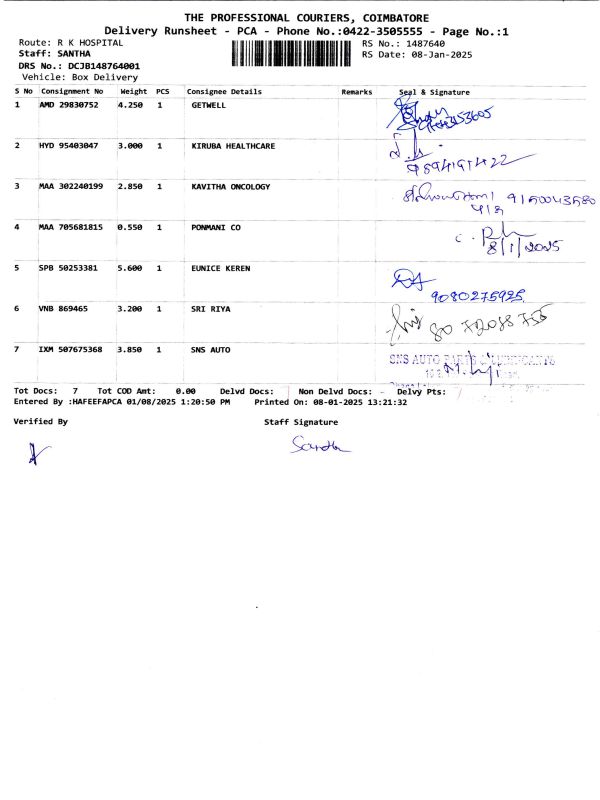 THE PROFESSIONAL COURIERS, COIMBATORE
Delivery Runsheet - PCA - Phone No.:0422-3505555 - Page No.:1
Route: R K HOSPITAL
RS No.: 1487640
Staff: SANTHA
RS Date: 08-Jan-2025
DRS No.: DCJB148764001
Vehicle: Box Delivery
S No Consignment No Weight PCS Consignee Details Remarks Seal & Signature
1 AMD 29830752 4.250 1 GETWELL
2 HYD 95403047 3.000 1 KIRUBA HEALTHCARE
3 MAA 302240199 2.850 1 KAVITHA ONCOLOGY
4 MAA 705681815 0.550 1 PONMANI CO
8/1/2025
5 SPB 50253381 5.600 1 EUNICE KEREN
9080275925
6 VNB 869465 3.200 1 SRI RIYA
7 IXM 507675368 3.850 1 SNS AUTO
SNS AUTO PARTS & LUBRICANTS
Tot Docs: 7 Tot COD Amt: 0.00 Delvd Docs: 7 Non Delvd Docs: - Delvy Pts: 7
Entered By :HAFEEFAPCA 01/08/2025 1:20:50 PM Printed On: 08-01-2025 13:21:32
Verified By Staff Signature
Santha